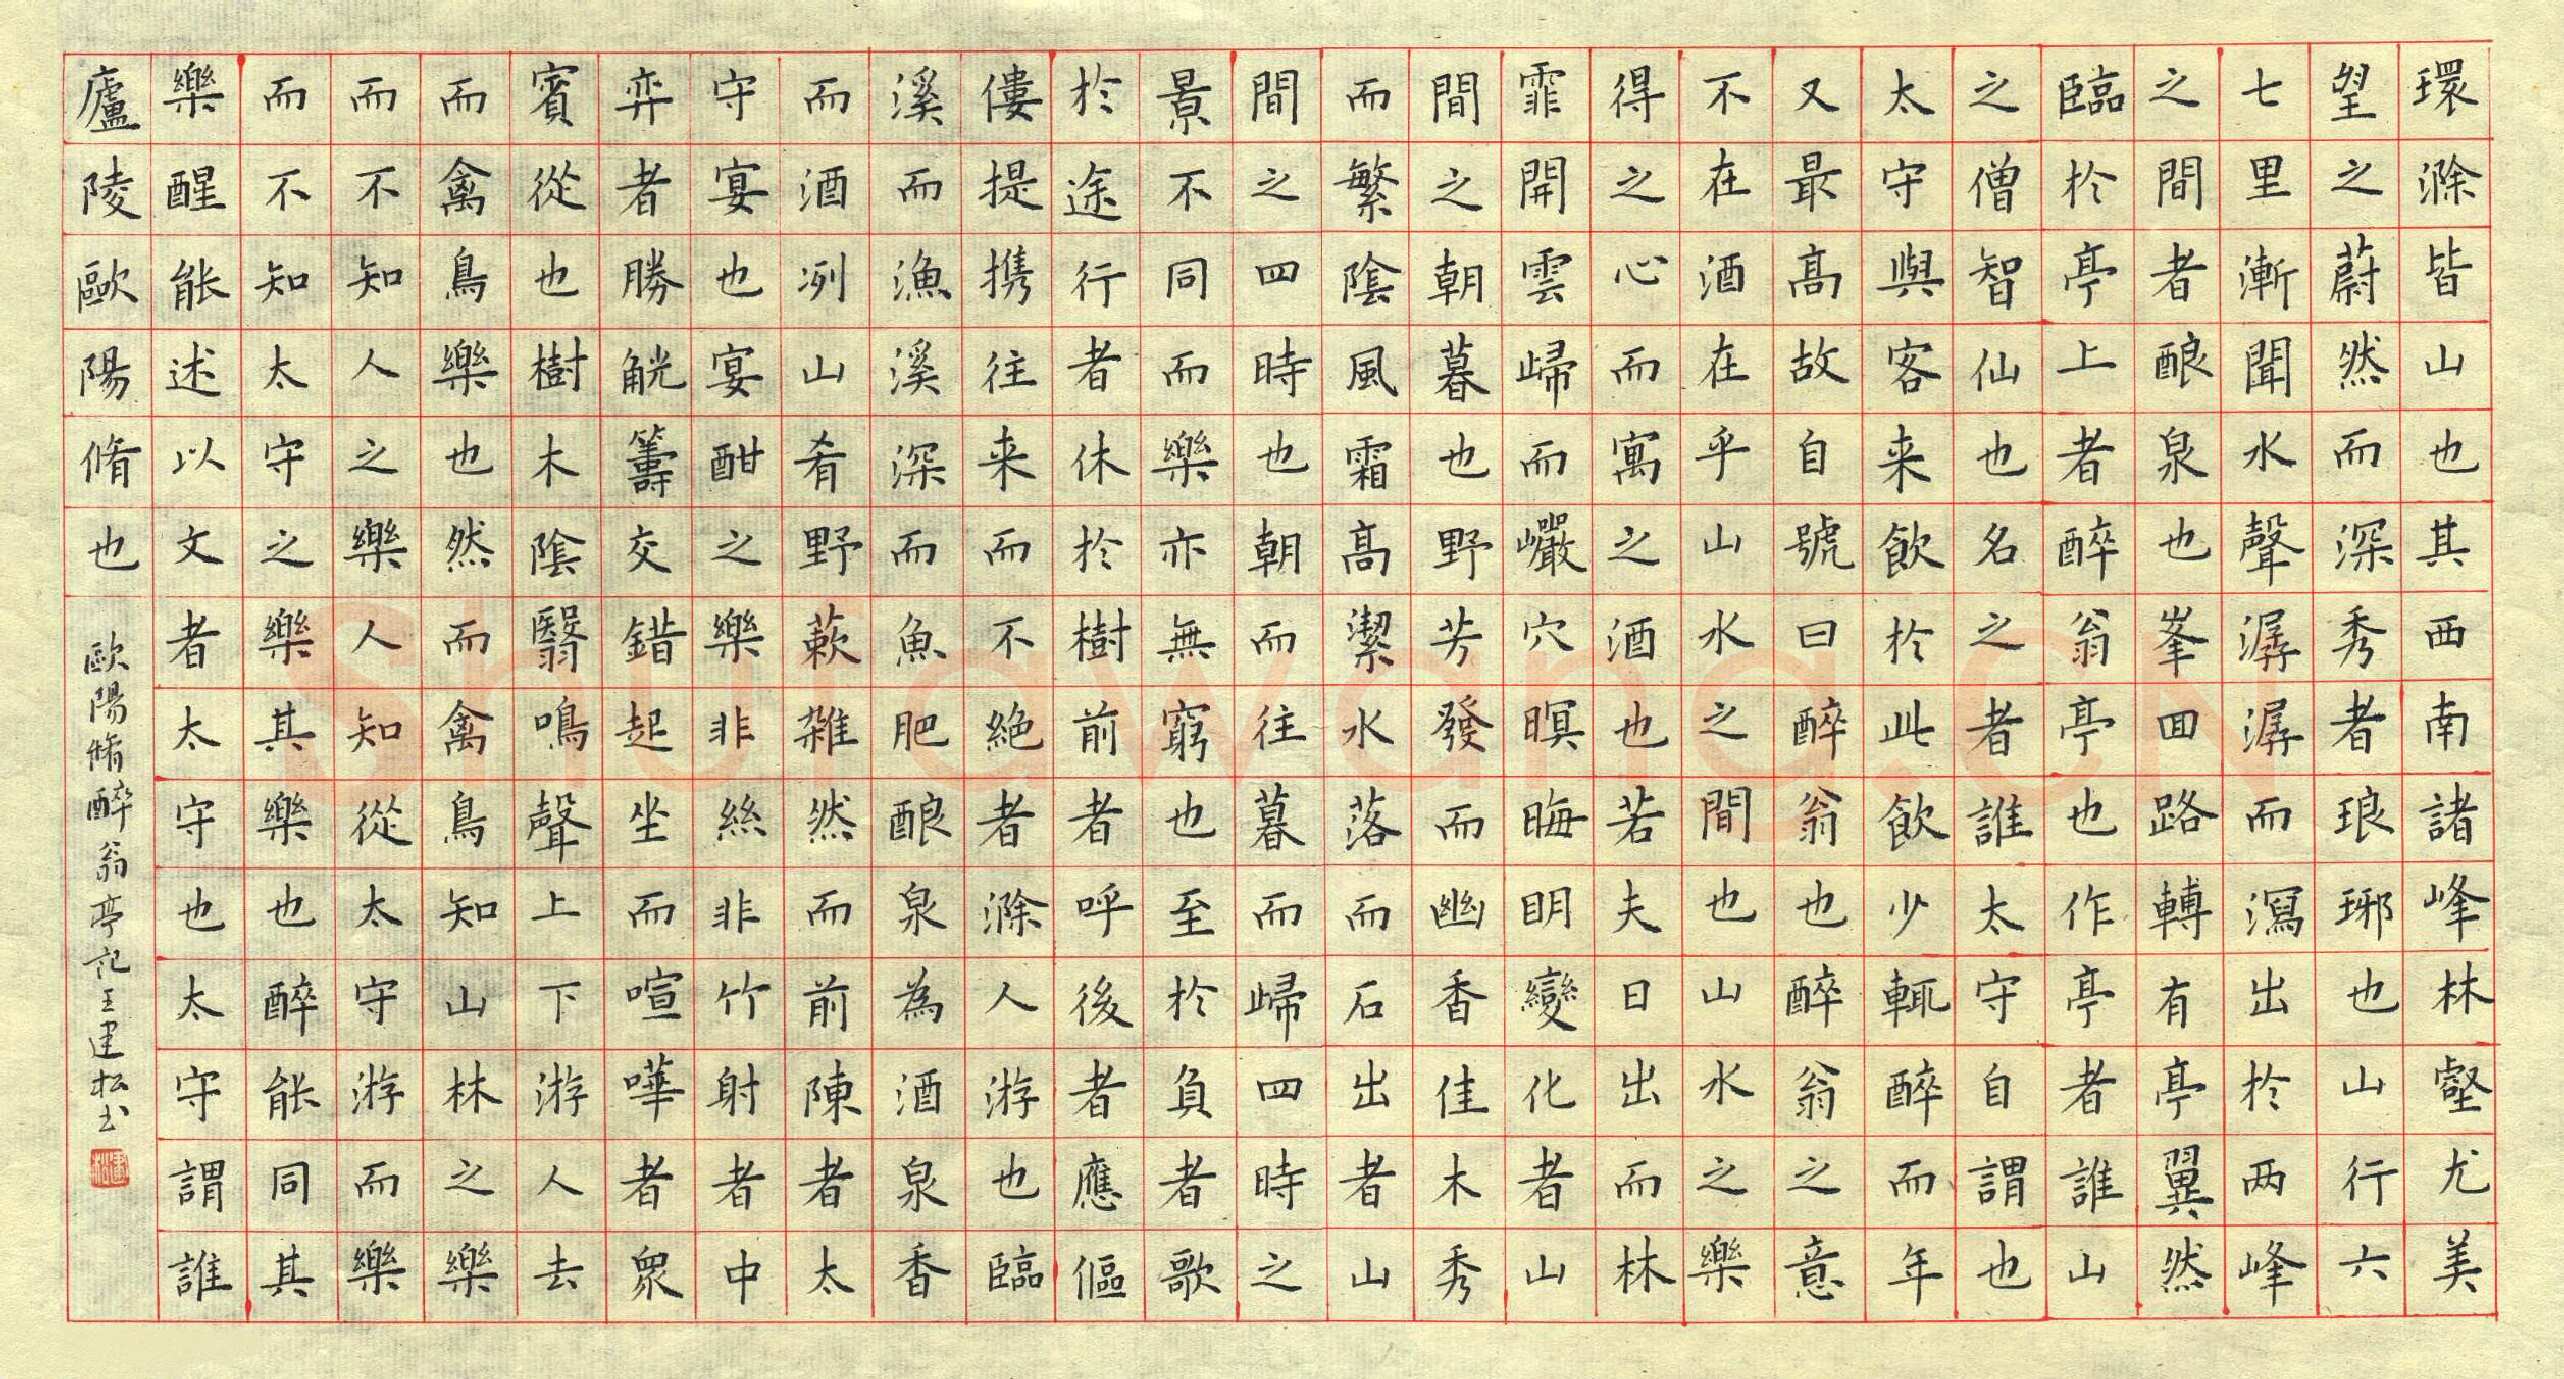 環滁皆山也其西南諸峰林壑尤美
望之蔚然而深秀者琅琊也山行六
七里漸聞水聲潺潺而瀉出於两峰
之間者酿泉也峯回路轉有亭翼然
臨於亭上者醉翁亭也作亭者誰山
之僧智仙也名之者誰太守自謂也
太守與客来飲於此飲少輒醉而年
又最高故自號曰醉翁也醉翁之意
不在酒在乎山水之間也山水之樂
得之心而寓之酒也若夫日出而林
霏開雲歸而巖穴暝晦明變化者山
間之朝暮也野芳發而幽香佳木秀
而繁陰風霜高潔水落而石出者山
間之四時也朝而往暮而歸四時之
景不同而樂亦無窮也至於負者歌
於途行者休於樹前者呼後者應傴
僂提携往来而不絶者滁人游也臨
溪而漁溪深而魚肥酿泉為酒泉香
而酒冽山肴野蔌雜然而前陳者太
守宴也宴酣之樂非絲非竹射者中
弈者勝觥籌交錯起坐而喧嘩者眾
賓從也樹木陰翳鳴聲上下游人去
而禽鳥樂也然而禽鳥知山林之樂
而不知人之樂人知從太守游而樂
而不知太守之樂其樂也醉能同其
樂醒能述以文者太守也太守謂誰
廬陵歐陽脩也
歐陽脩醉翁亭記王建松书
建松
shufawang.cn